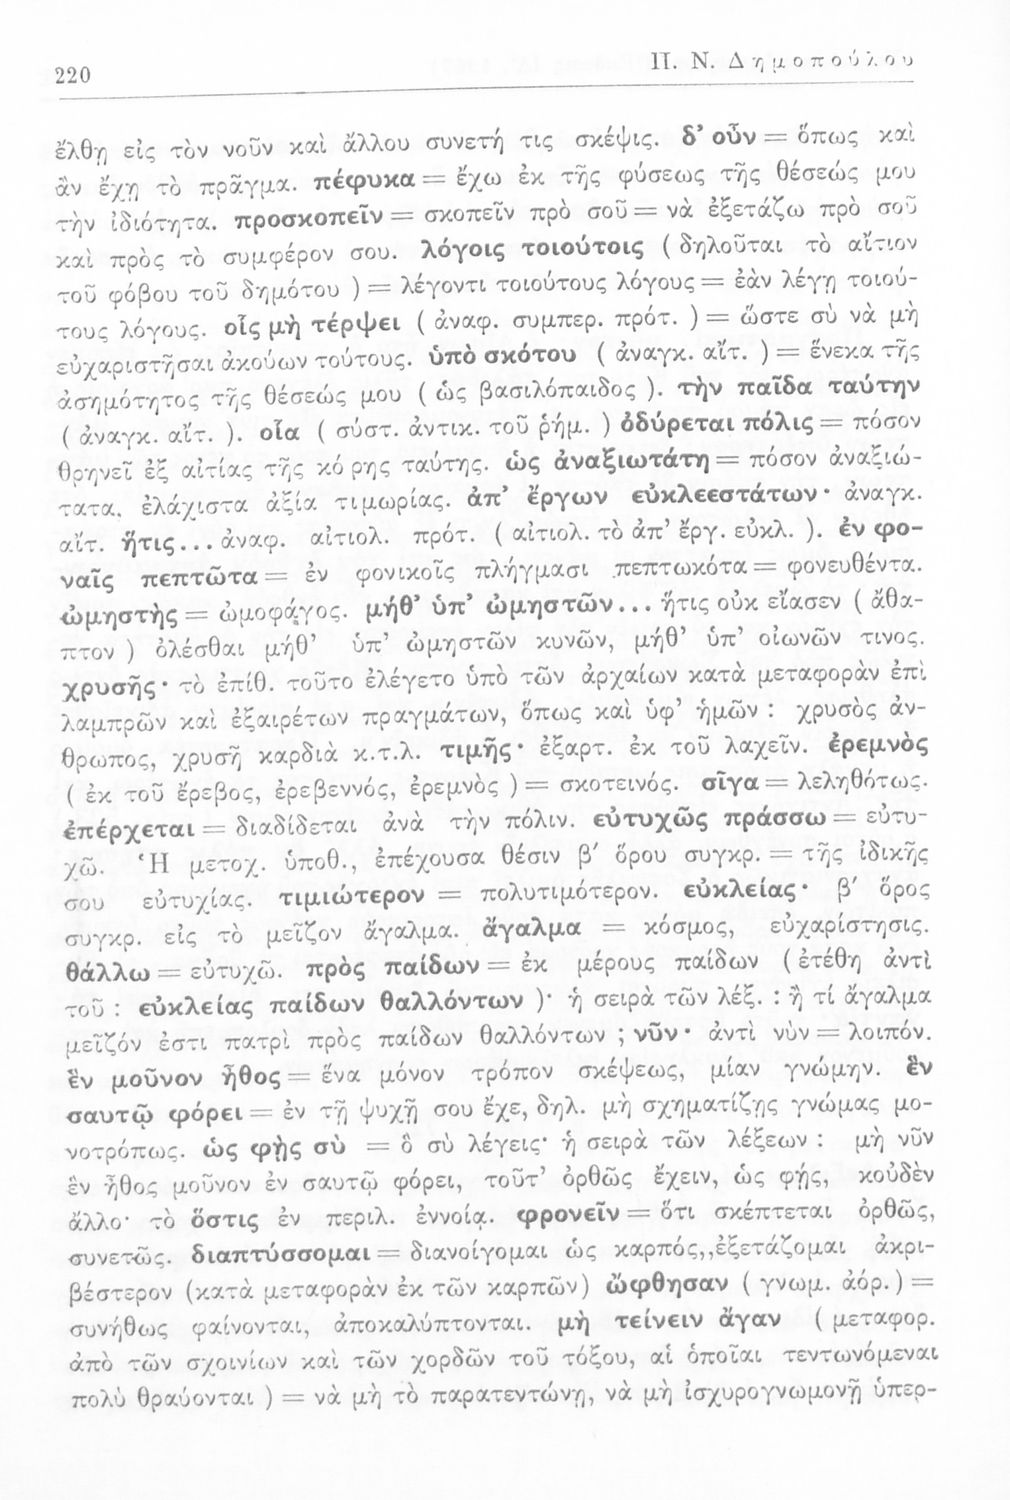 220
Π. Ν. Δημοπούλου
ἔλθῃ εἰς τὸν νοῦν καὶ ἄλλου συνετή τις σκέψις. δ’ οὖν = ὅπως καὶ
ἂν ἔχῃ τὸ πρᾶγμα. πέφυκα = ἔχω ἐκ τῆς φύσεως τῆς θέσεώς μου
τὴν ἰδιότητα. προσκοπεῖν = σκοπεῖν πρὸ σοῦ = νὰ ἐξετάζω πρὸ σοῦ
καὶ πρὸς τὸ συμφέρον σου. λόγοις τοιούτοις ( δηλοῦται τὸ αἴτιον
τοῦ φόβου τοῦ δημότου ) = λέγοντι τοιούτους λόγους = ἐὰν λέγῃ τοιού-
τους λόγους. οἷς μὴ τέρψει ( ἀναφ. συμπερ. πρότ. ) = ὥστε σὺ νὰ μὴ
εὐχαριστῆσαι ἀκούων τούτους. ὑπὸ σκότου ( ἀναγκ. αἴτ. ) = ἕνεκα τῆς
ἀσημότητος τῆς θέσεώς μου ( ὡς βασιλόπαιδος ). τὴν παῖδα ταύτην
( ἀναγκ. αἴτ. ). οἷα ( σύστ. ἀντικ. τοῦ ῥήμ. ) ὀδύρεται πόλις = πόσον
θρηνεῖ ἐξ αἰτίας τῆς κόρης ταύτης. ὡς ἀναξιωτάτη = πόσον ἀναξιώ-
τατα, ἐλάχιστα ἀξία τιμωρίας. ἀπ’ ἔργων εὐκλεεστάτων· ἀναγκ.
αἴτ. ἥτις... ἀναφ. αἰτιολ. πρότ. ( αἰτιολ. τὸ ἀπ’ ἔργ. εὐκλ. ). ἐν φο-
ναῖς πεπτῶτα = ἐν φονικοῖς πλήγμασι πεπτωκότα = φονευθέντα.
ὠμηστὴς = ὠμοφάγος. μήθ’ ὑπ’ ὠμηστῶν... ἥτις οὐκ εἴασεν ( ἄθα-
πτον ) ὀλέσθαι μήθ’ ὑπ’ ὠμηστῶν κυνῶν, μήθ’ ὑπ’ οἰωνῶν τινος.
χρυσῆς· τὸ ἐπίθ. τοῦτο ἐλέγετο ὑπὸ τῶν ἀρχαίων κατὰ μεταφορὰν ἐπὶ
λαμπρῶν καὶ ἐξαιρέτων πραγμάτων, ὅπως καὶ ὑφ’ ἡμῶν : χρυσὸς ἄν-
θρωπος, χρυσῆ καρδιὰ κ.τ.λ. τιμῆς· ἐξαρτ. ἐκ τοῦ λαχεῖν. ἐρεμνὸς
( ἐκ τοῦ ἔρεβος, ἐρεβεννός, ἐρεμνὸς ) = σκοτεινός. σῖγα = λεληθότως.
ἐπέρχεται = διαδίδεται ἀνὰ τὴν πόλιν. εὐτυχῶς πράσσω = εὐτυ-
χῶ. Ἡ μετοχ. ὑποθ., ἐπέχουσα θέσιν β′ ὅρου συγκρ. = τῆς ἰδικῆς
σου εὐτυχίας. τιμιώτερον = πολυτιμότερον. εὐκλείας· β′ ὅρος
συγκρ. εἰς τὸ μεῖζον ἄγαλμα. ἄγαλμα = κόσμος, εὐχαρίστησις.
θάλλω = εὐτυχῶ. πρὸς παίδων = ἐκ μέρους παίδων ( ἐτέθη ἀντὶ
τοῦ : εὐκλείας παίδων θαλλόντων )· ἡ σειρὰ τῶν λέξ. : ἢ τί ἄγαλμα
μεῖζόν ἐστι πατρὶ πρὸς παίδων θαλλόντων ; νῦν· ἀντὶ νὺν = λοιπόν.
ἓν μοῦνον ἦθος = ἕνα μόνον τρόπον σκέψεως, μίαν γνώμην. ἐν
σαυτῷ φόρει = ἐν τῇ ψυχῇ σου ἔχε, δηλ. μὴ σχηματίζῃς γνώμας μο-
νοτρόπως. ὡς φῂς σὺ = ὃ σὺ λέγεις· ἡ σειρὰ τῶν λέξεων : μὴ νῦν
ἓν ἦθος μοῦνον ἐν σαυτῷ φόρει, τοῦτ’ ὀρθῶς ἔχειν, ὡς φῄς, κοὐδὲν
ἄλλο· τὸ ὅστις ἐν περιλ. ἐννοίᾳ. φρονεῖν = ὅτι σκέπτεται ὀρθῶς,
συνετῶς. διαπτύσσομαι = διανοίγομαι ὡς καρπός,,ἐξετάζομαι ἀκρι-
βέστερον (κατὰ μεταφορὰν ἐκ τῶν καρπῶν) ὤφθησαν ( γνωμ. ἀόρ.) =
συνήθως φαίνονται, ἀποκαλύπτονται. μὴ τείνειν ἄγαν ( μεταφορ.
ἀπὸ τῶν σχοινίων καὶ τῶν χορδῶν τοῦ τόξου, αἱ ὁποῖαι τεντωνόμεναι
πολὺ θραύονται ) = νὰ μὴ τὸ παρατεντώνῃ, νὰ μὴ ἰσχυρογνωμονῇ ὑπερ-